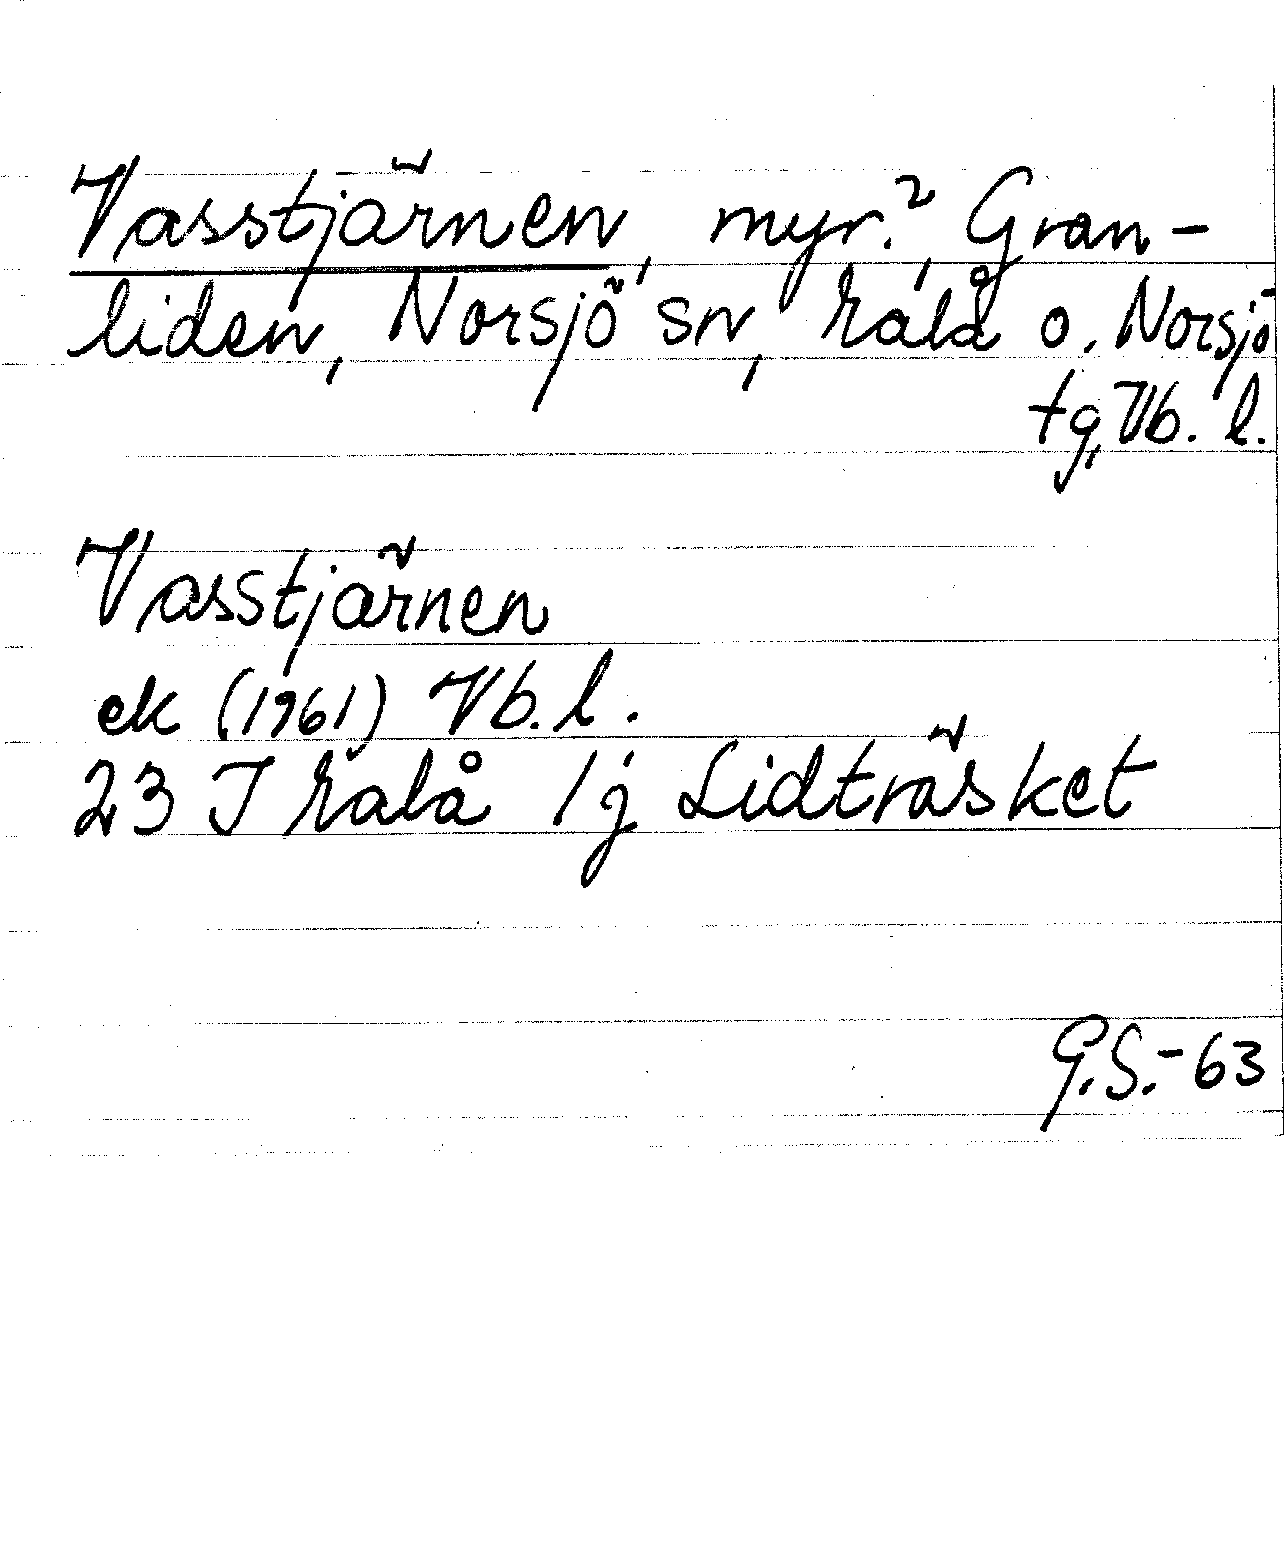 Vasstjärnen, myr?, Gran-
liden, Norsjö sn, Malå o. Norsjö
tg, Vb. l.
Vasstjärnen
ek (1961) Vb. l.
23 I Malå 1j Lidträsket
G.S.-63